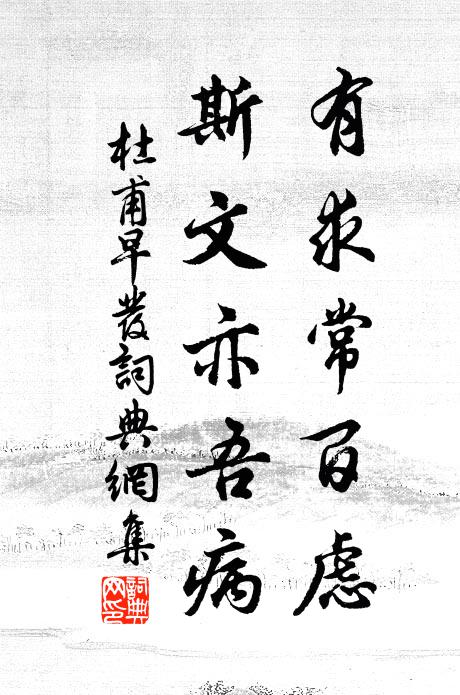 有求常百慮
斯文亦吾病
杜甫早發詞典網集
詞典網印